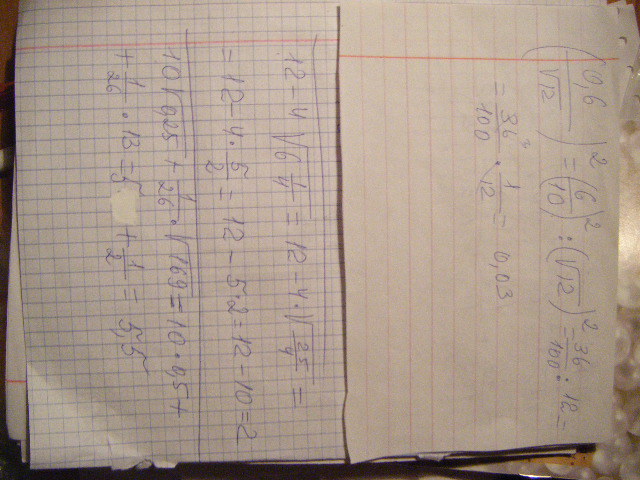 (0,6/√12)² = (6/10)² : (√12)² = 36/100 : 12 =
= 36/100 · 1/12 = 0,03
12 - 4√(6 1/4) = 12 - 4·√(25/4) =
= 12 - 4·5/2 = 12 - 5·2 = 12 - 10 = 2
10√0,25 + 1/26·√169 = 10·0,5 +
+ 1/26 · 13 = 5 + 1/2 = 5,5